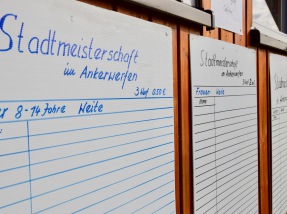 Stadtmeisterschaft
im Ankerwerfen
3 Wurf 0.50 €
8-14 Jahre Weite
Stadtmeisterschaft
im Ankerwerfen
Frauen Weite
Name